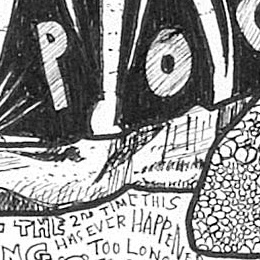 PO
THE 2ND TIME THIS
HAS EVER HAPPENE
TOO LONG